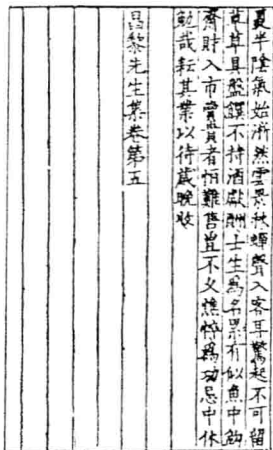 夏半陰氣始淅然雲景秋蟬聲入客耳驚起不可留
草草具盤饌不待酒獻酬士生爲名累有似魚中鈎
齎財入市賣貴者怕難售豈不久憔悴爲功忌中休
勉哉耘其業以待歲晚收
昌黎先生集卷第五